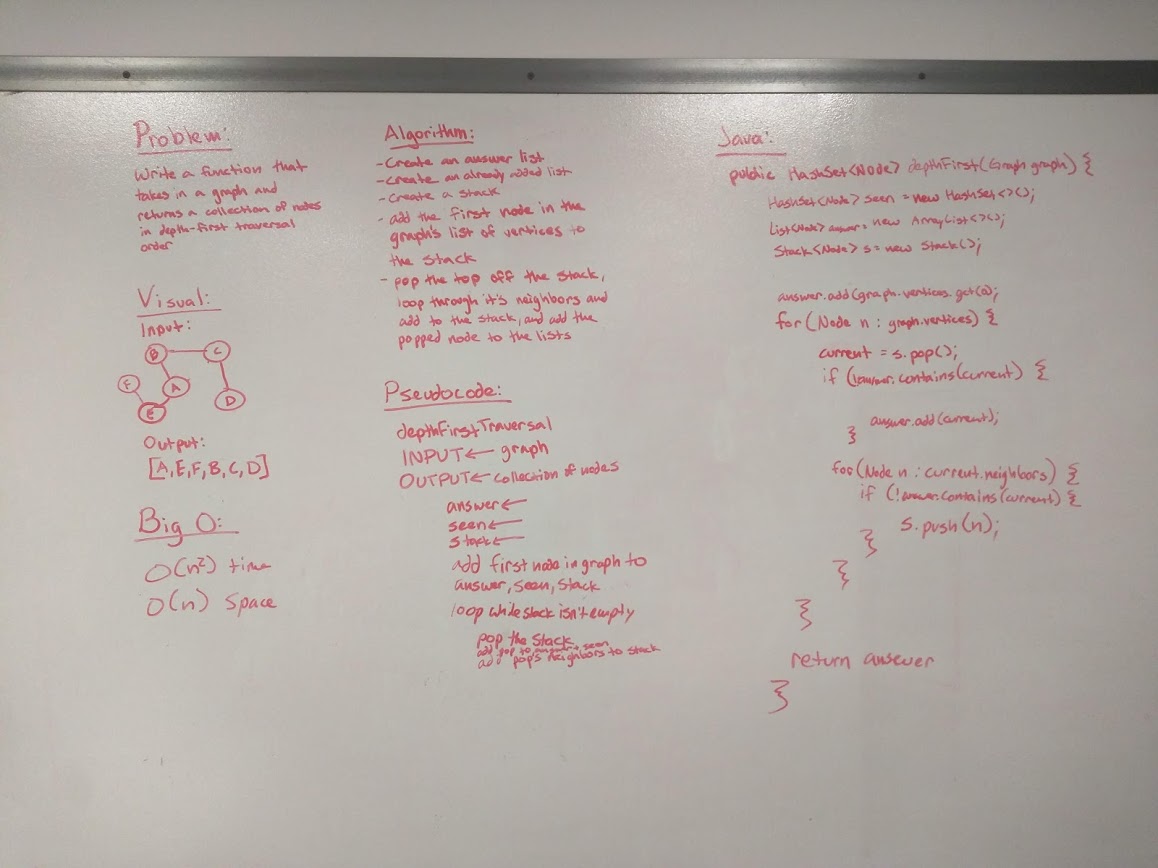 Problem:
Write a function that
takes in a graph and
returns a collection of nodes
in depth-first traversal
order
Visual:
Input:
B
C
F
A
E
D
Output:
[A,E,F,B,C,D]
Big O:
O(n²) time
O(n) space
Algorithm:
- Create an answer list
- create an already added list
- create a stack
- add the first node in the
graph's list of vertices to
the stack
- pop the top off the stack,
loop through it's neighbors and
add to the stack, and add the
popped node to the lists
Pseudocode:
depthFirstTraversal
INPUT ← graph
OUTPUT ← collection of nodes
answer ←
seen ←
stack ←
add first node in graph to
answer, seen, stack
loop while stack isn't empty
pop the stack
add pop to answer + seen
add pop's neighbors to stack
Java:
public HashSet<Node> depthFirst(Graph graph) {
HashSet<Node> seen = new HashSet<>();
List<Node> answer = new ArrayList<>();
Stack<Node> s = new Stack();
answer.add(graph.vertices.get(0);
for (Node n : graph.vertices) {
current = s.pop();
if (!answer.contains(current) {
answer.add(current);
}
for (Node n : current.neighbors) {
if (!answer.contains(current) {
s.push(n);
}
}
}
return answer
}